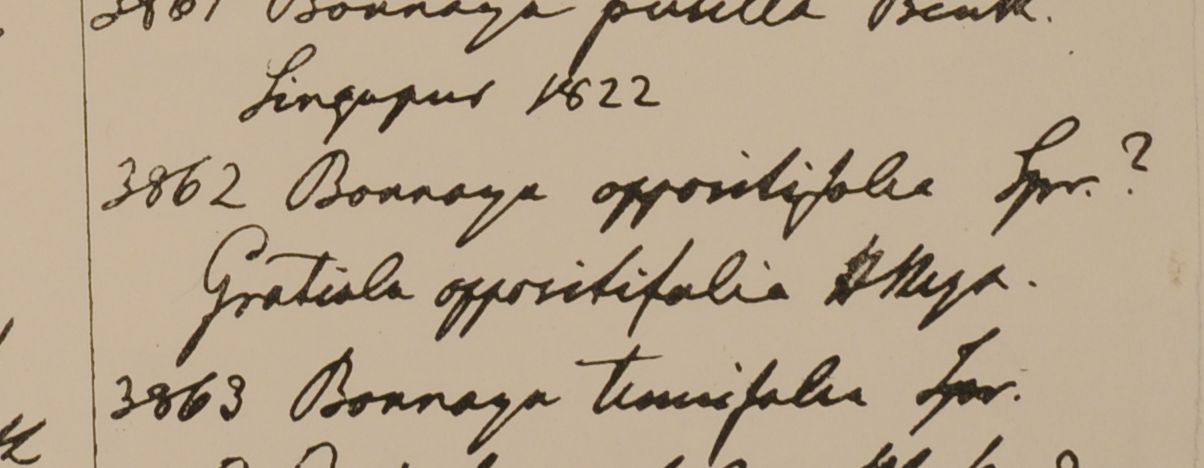 3861 Bonnaya pusilla Benth.
Singapur 1822
3862 Bonnaya oppositifolia Spr. ?
Gratiola oppositifolia
3863 Bonnaya tenuifolia Spr.